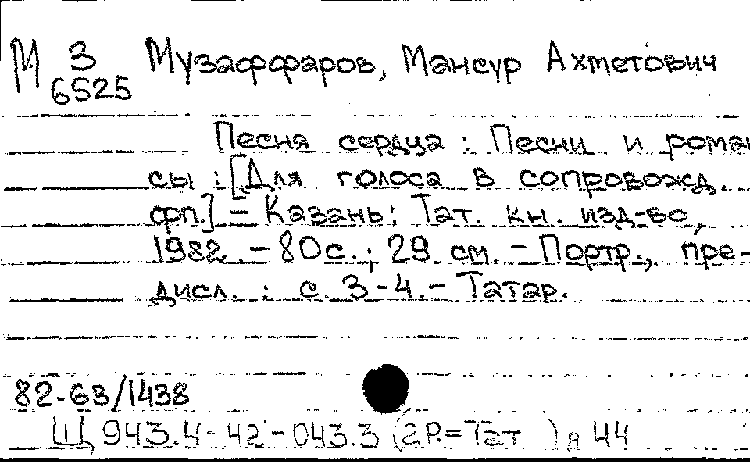 М 3 Музаффаров, Мансур Ахметович
6525
Песня сердца : Песни и рома
сы : [Для голоса в сопровожд.
фп.] – Казань: Тат. кн. изд-во,
1982. – 80 с. ; 29 см. – Портр., пре-
дисл. : с. 3-4. – Татар.
82-63/1438
Щ 943.4-42-043.3 (2Р=Тат ) я 44